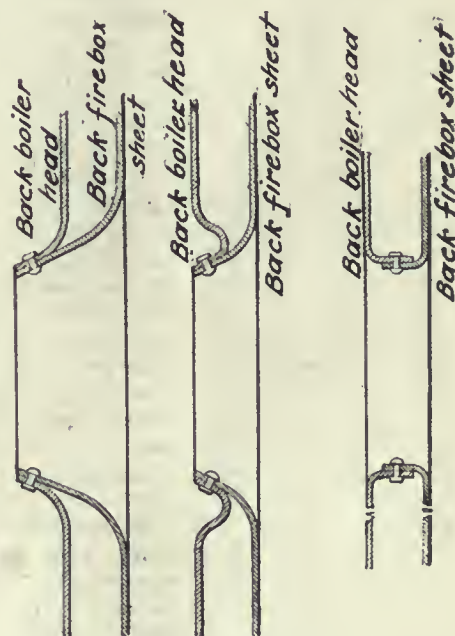 Back boiler
head
Back firebox
sheet
Back boiler head
Back firebox sheet
Back boiler head
Back firebox sheet